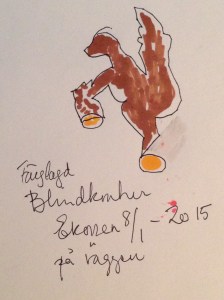 Färglagd
Blindkontur
Ekorren 8/1 - 2015
på väggen